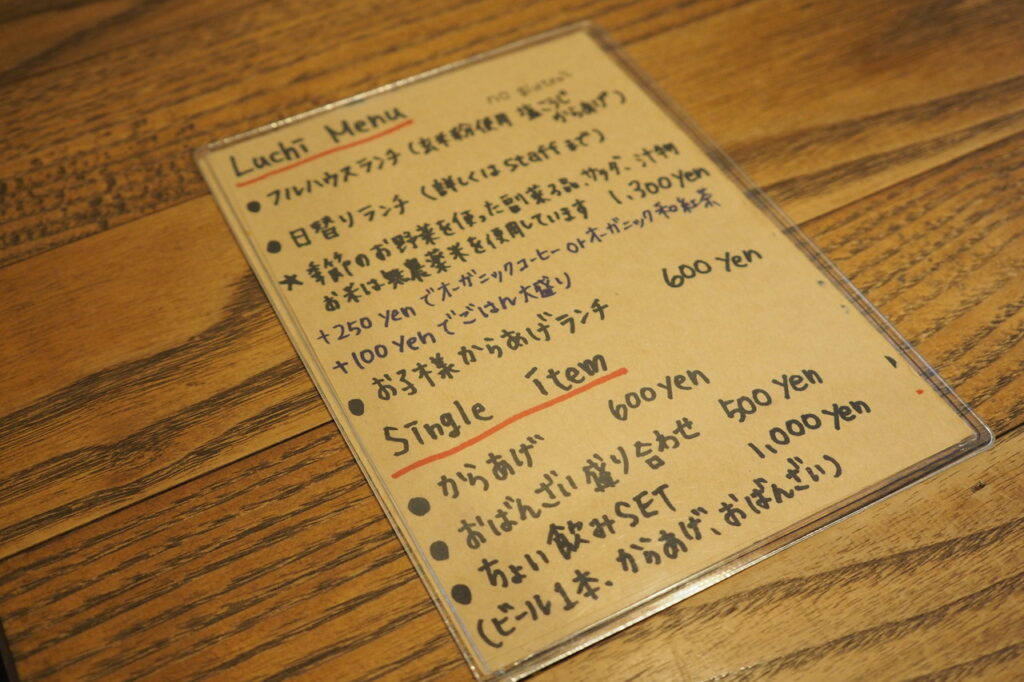 Luchi Menu
no gluten!
• フルハウスランチ (玄米粉使用 塩こうじ からあげ)
• 日替りランチ (詳しくは staff まで)
★ 季節のお野菜を使った副菜3品、サラダ、汁物
お米は無農薬米を使用しています 1,300 yen
+250 yen でオーガニックコーヒー or オーガニック和紅茶
+100 yen でごはん大盛り
• お子様からあげランチ 600 yen
Single item
• からあげ 600 yen
• おばんざい盛り合わせ 500 yen
• ちょい飲みSET 1,000 yen
(ビール1本、からあげ、おばんざい)